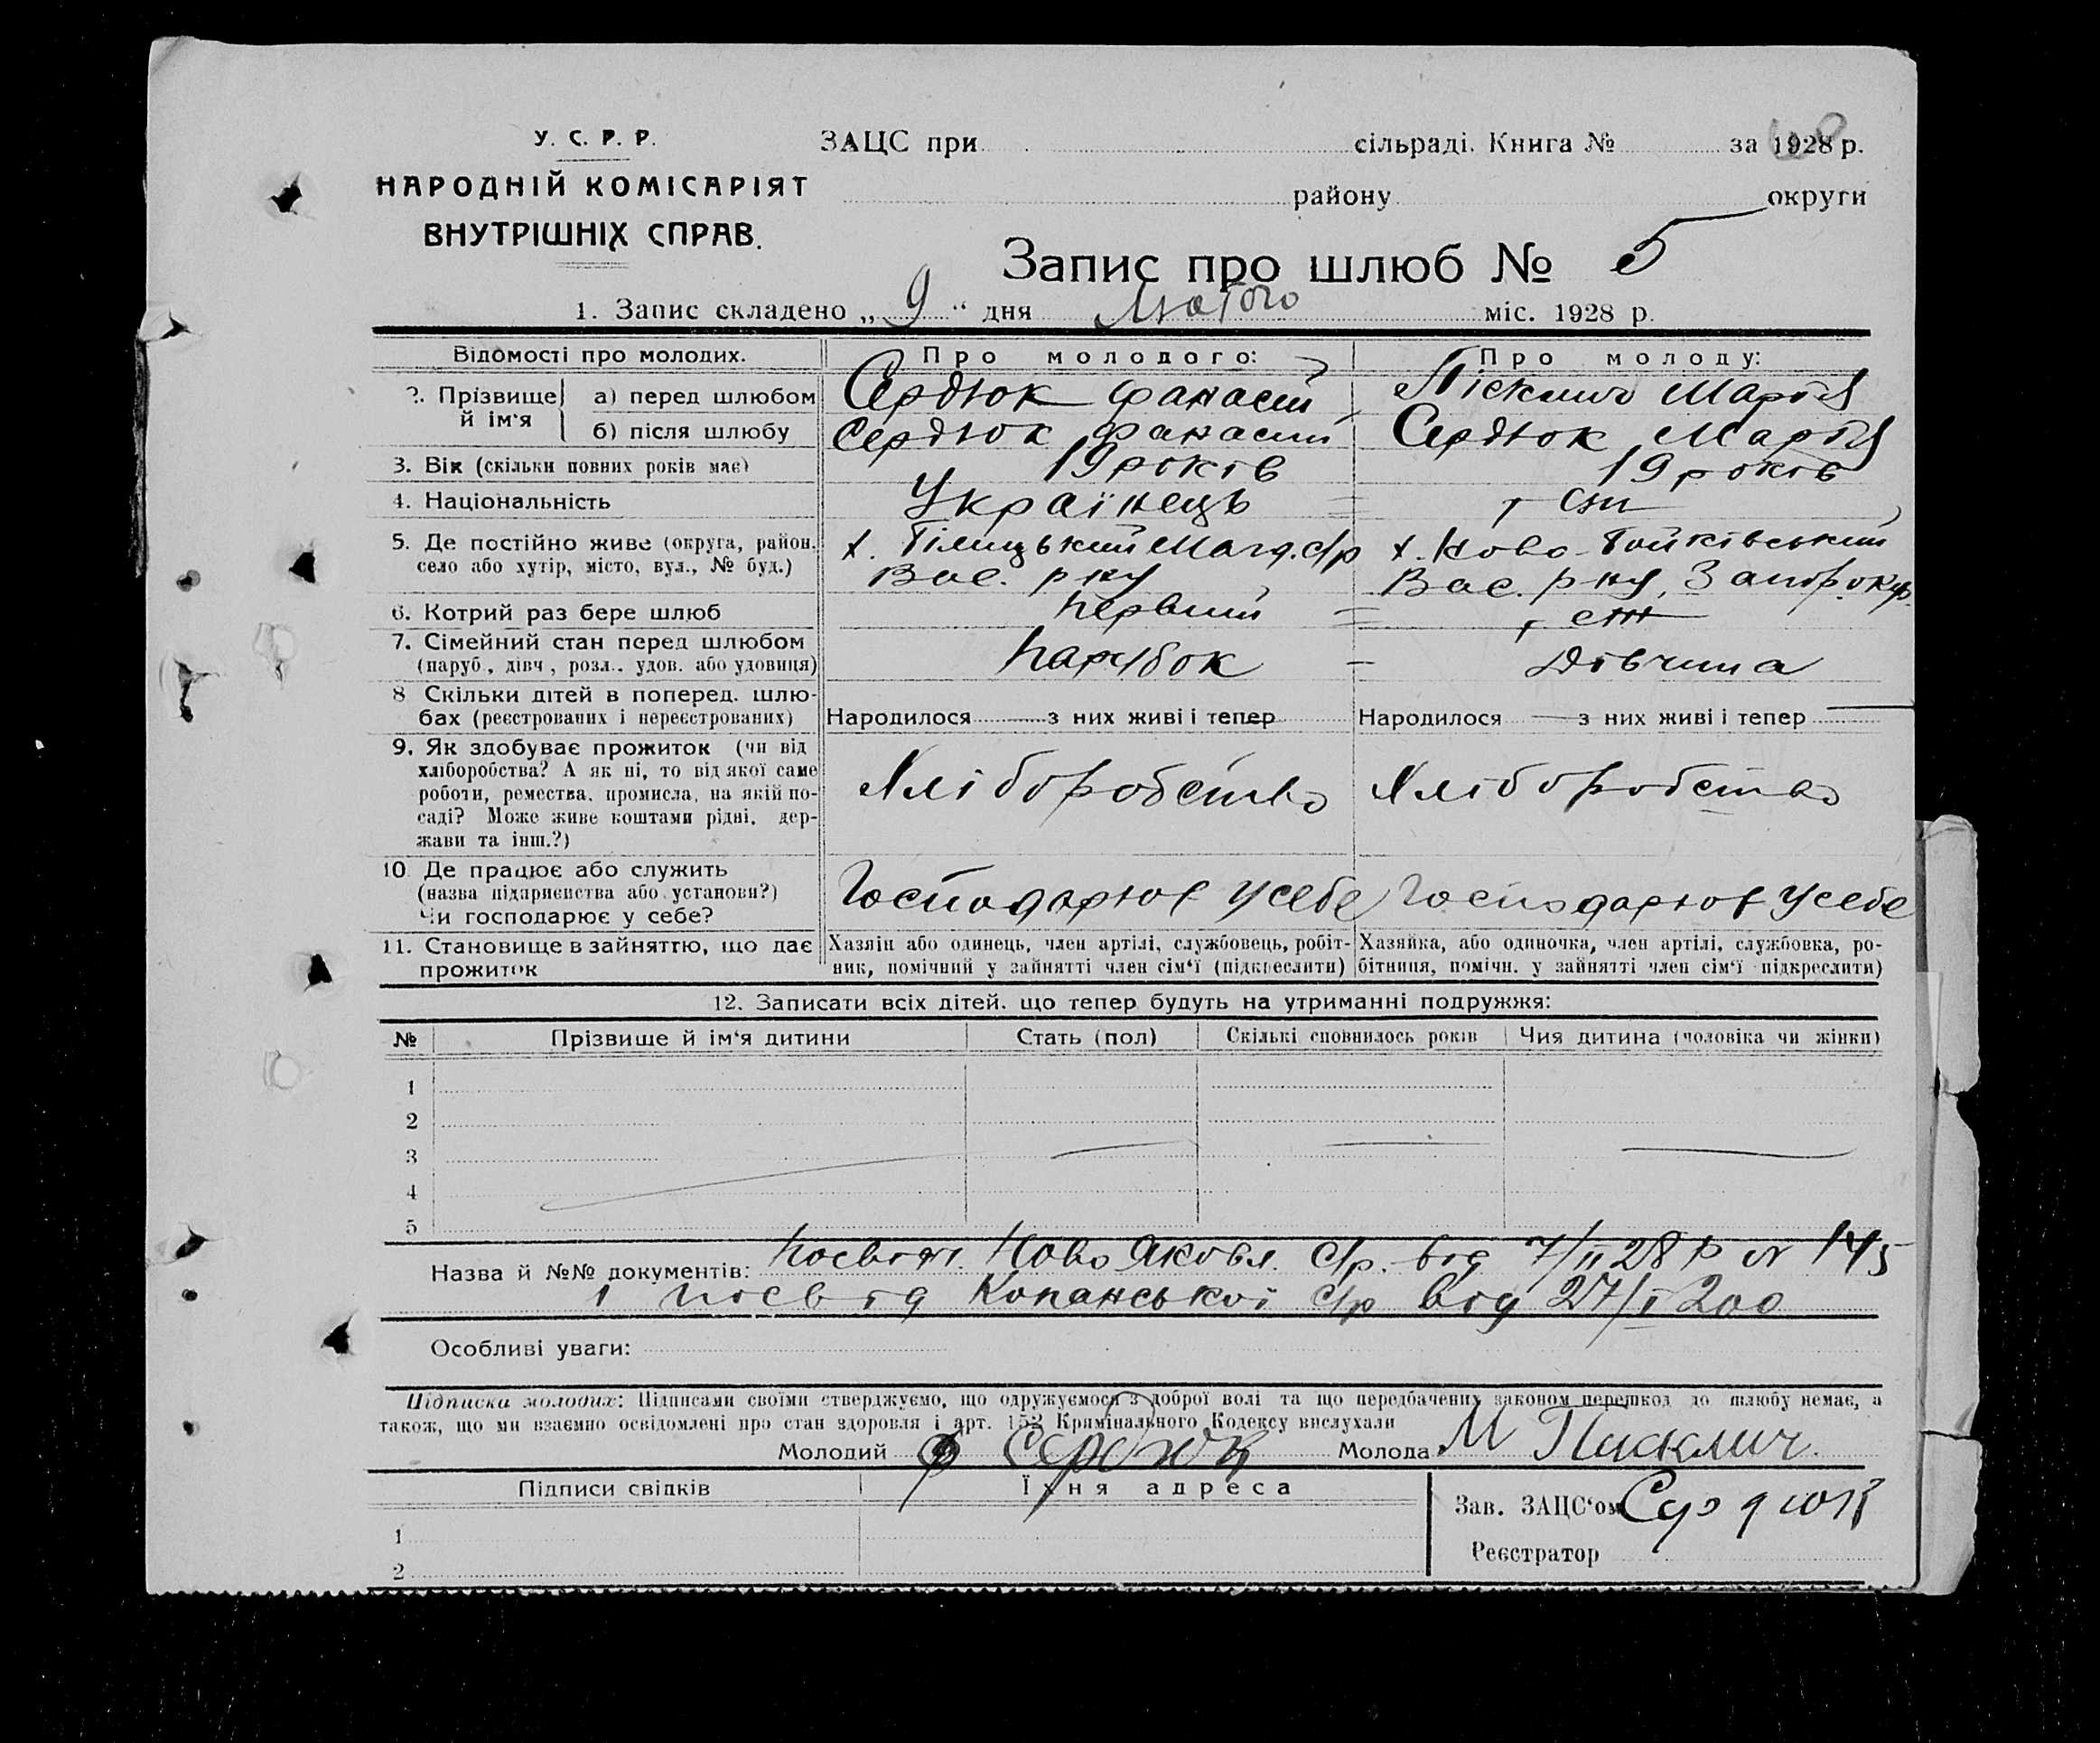 У. С. Р. Р.
НАРОДНІЙ КОМІСАРІЯТ
ВНУТРІШНІХ СПРАВ.
ЗАЦС при сільраді. Книга № за 1928 р.
району округи
Запис про шлюб № 5
1. Запис складено „ 9 “ дня Лютого міс. 1928 р.
Відомості про молодих. Про молодого: Про молоду:
2. Прізвище й ім‘я
а) перед шлюбом Сердюк Фанасій Піскмич Марія
б) після шлюбу Сердюк Фанасий Сердюк Марія
3. Вік (скільки повних років має) 19 років 19 років
4. Національність Українець
5. Де постійно живе (округа, район, село або хутір, місто, вул., № буд.)
х. Білицький Магд. с/р
Вас. рну
х. Ново-Бойківський
Вас. рну, Запор. окр.
6. Котрий раз бере шлюб первий
7. Сімейний стан перед шлюбом
(паруб., дівч., розл., удов. або удовиця) парубок Дівчина
8 Скільки дітей в поперед. шлю-
бах (реєстрованих і нереєстрованих) Народилося — з них живі і тепер Народилося — з них живі і тепер —
9. Як здобуває прожиток (чи від
хліборобства? А як ні, то від якої саме
роботи, ремества, промисла, на якій по-
саді? Може живе коштами рідні, дер-
жави та інш.?)
Хліборобство Хліборобство
10 Де працює або служить
(назва підприємства або установи?)
Чи господарює у себе?
Господарює у себе Господарює у себе
11. Становище в зайняттю, що дає
прожиток
Хазяїн або одинець, член артілі, службовець, робіт-
ник, помічний у зайнятті член сім‘ї (підкреслити)
Хазяйка, або одиночка, член артілі, службовка, ро-
бітниця, помічн. у зайнятті член сім‘ї підкреслити)
12. Записати всіх дітей, що тепер будуть на утриманні подружжя:
№ Прізвище й ім‘я дитини Стать (пол) Скількі сповнилось років Чия дитина (чоловіка чи жінки)
1
2
3
4
5
Назва й №№ документів: посвідч. Ново Яковл. с/р. від 7/II 28 р № 145
і посвід Копанської с/р від 27/I 200
Особливі уваги:
Підписка молодих: Підписами своїми стверджуємо, що одружуємося з доброї волі та що передбачених законом перешкод до шлюбу немає, а
також, що ми взаємно освідомлені про стан здоровля і арт. 152 Кримінального Кодексу вислухали
Молодий Ф Сердюк Молода М Пискмич.
Підписи свідків Їхня адреса
Зав. ЗАЦС‘ом Сердюк
Реєстратор
1
2